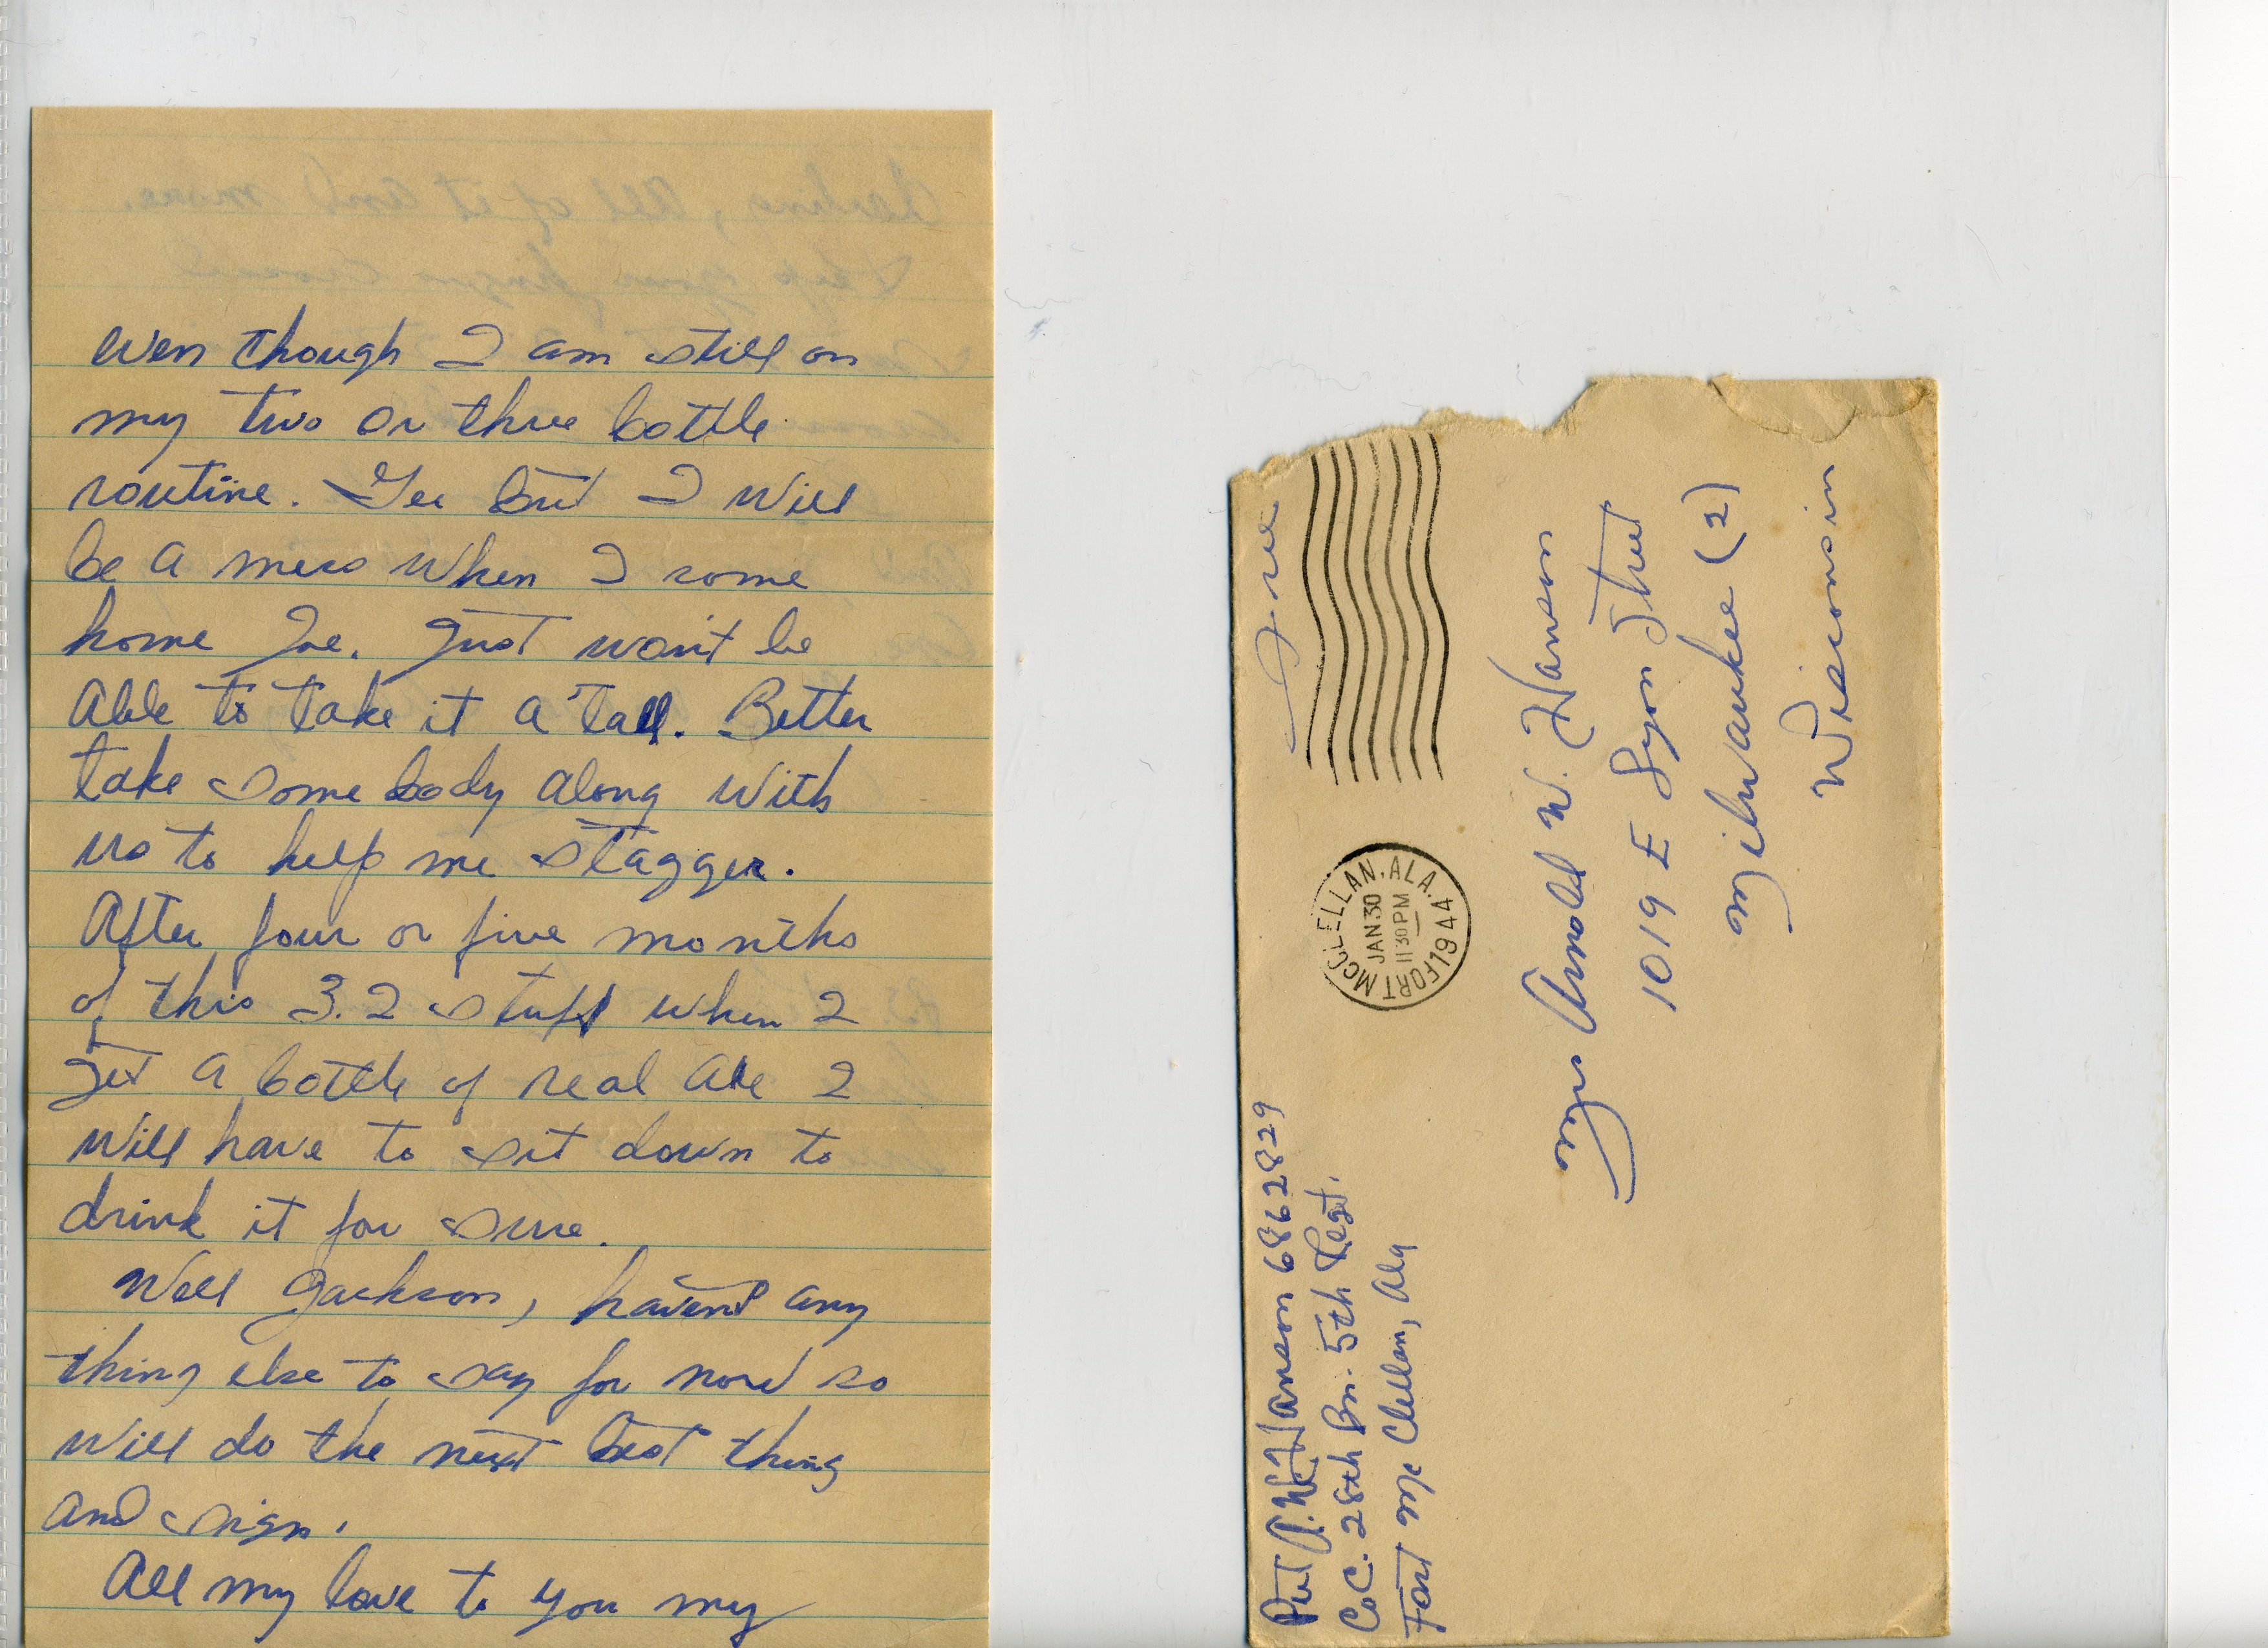 even though I am still on
my two or three bottle
routine. Gee but I will
be a mess when I come
home Joe. Just won't be
able to take it a tall. Better
take some body along with
us to help me stagger.
After four or five months
of this 3.2 stuff when I
get a bottle of real ale I
will have to sit down to
drink it for sure.
Well Jackson, havent any
thing else to say for now so
will do the next best thing
and sign.
All my love to you my
Pvt A. W. Hanson 6862829
Co C. 28th Bn. 5th Regt.
Fort Mc Clellan, Ala
Free
FORT MCCLELLAN, ALA.
JAN 30
11 30 PM
1944
Mrs Arnold W. Hanson
1019 E Lyon Street
Milwaukee (2)
Wisconsin
darling, All of it and more.